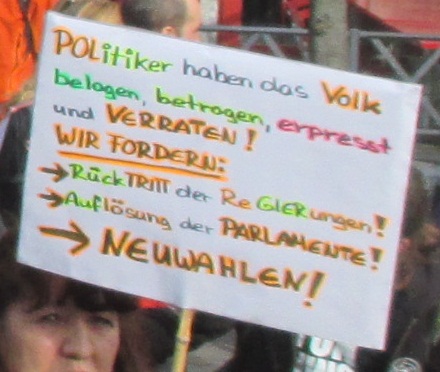 POLitiker haben das Volk
belogen, betrogen, erpresst
und VERRATEN!
WIR FORDERN:
→ RückTRITT der ReGIERungen!
→ Auflösung der PARLAMENTE!
→ NEUWAHLEN!